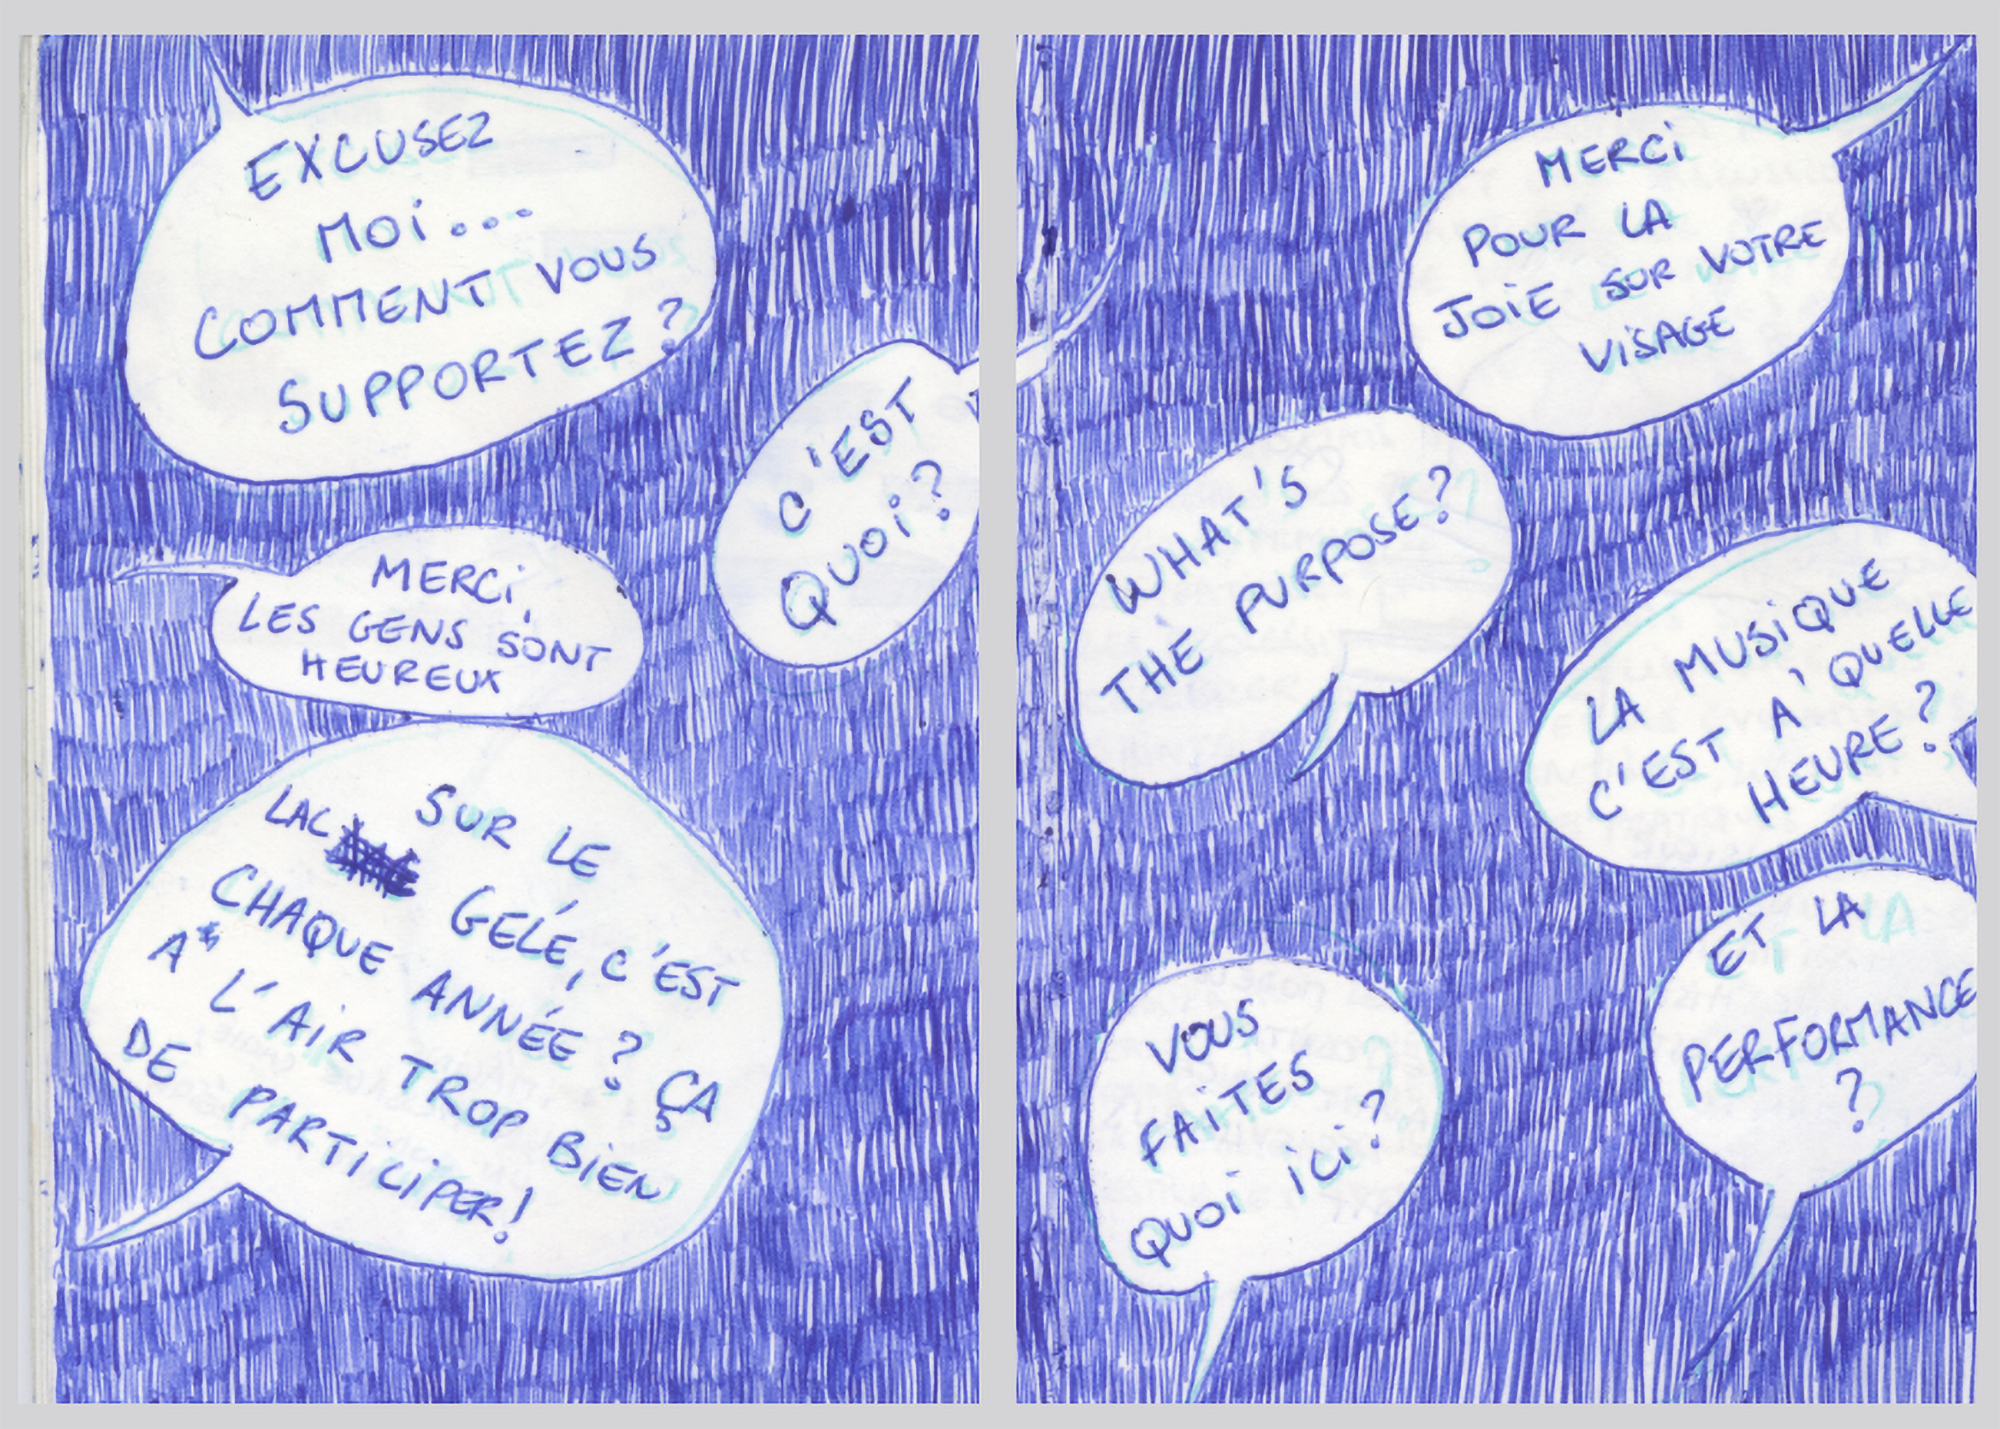 EXCUSEZ
MOI...
COMMENT VOUS
SUPPORTEZ?
C'EST
QUOI?
MERCI,
LES GENS SONT
HEUREUX
SUR LE
LAC GELÉ, C'EST
CHAQUE ANNÉE? ÇA
A L'AIR TROP BIEN
DE PARTICIPER!
MERCI
POUR LA
JOIE SUR VOTRE
VISAGE
WHAT'S
THE PURPOSE?
LA MUSIQUE
C'EST A' QUELLE
HEURE?
VOUS
FAITES
QUOI ICI?
ET LA
PERFORMANCE
?